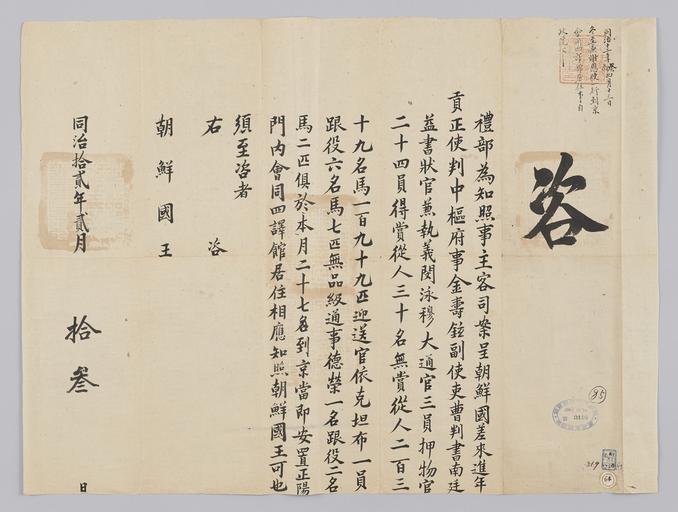 咨
禮部為知照事主客司案呈朝鮮國差來進年
貢正使判中樞府事金壽鉉副使吏曹判書南廷
益書狀官兼執義閔泳穆大通官三員押物官
二十四員得賞從人三十名無賞從人二百三
十九名馬一百九十九匹迎送官依克坦布一員
跟役六名馬七匹無品級通事德榮一名跟役二名
馬二匹俱於本月二十七名到京當即安置正陽
門內會同四譯館居住相應知照朝鮮國王可也
須至咨者
右咨
朝鮮國王
同治拾貳年貳月 拾叁 日
95
219
64